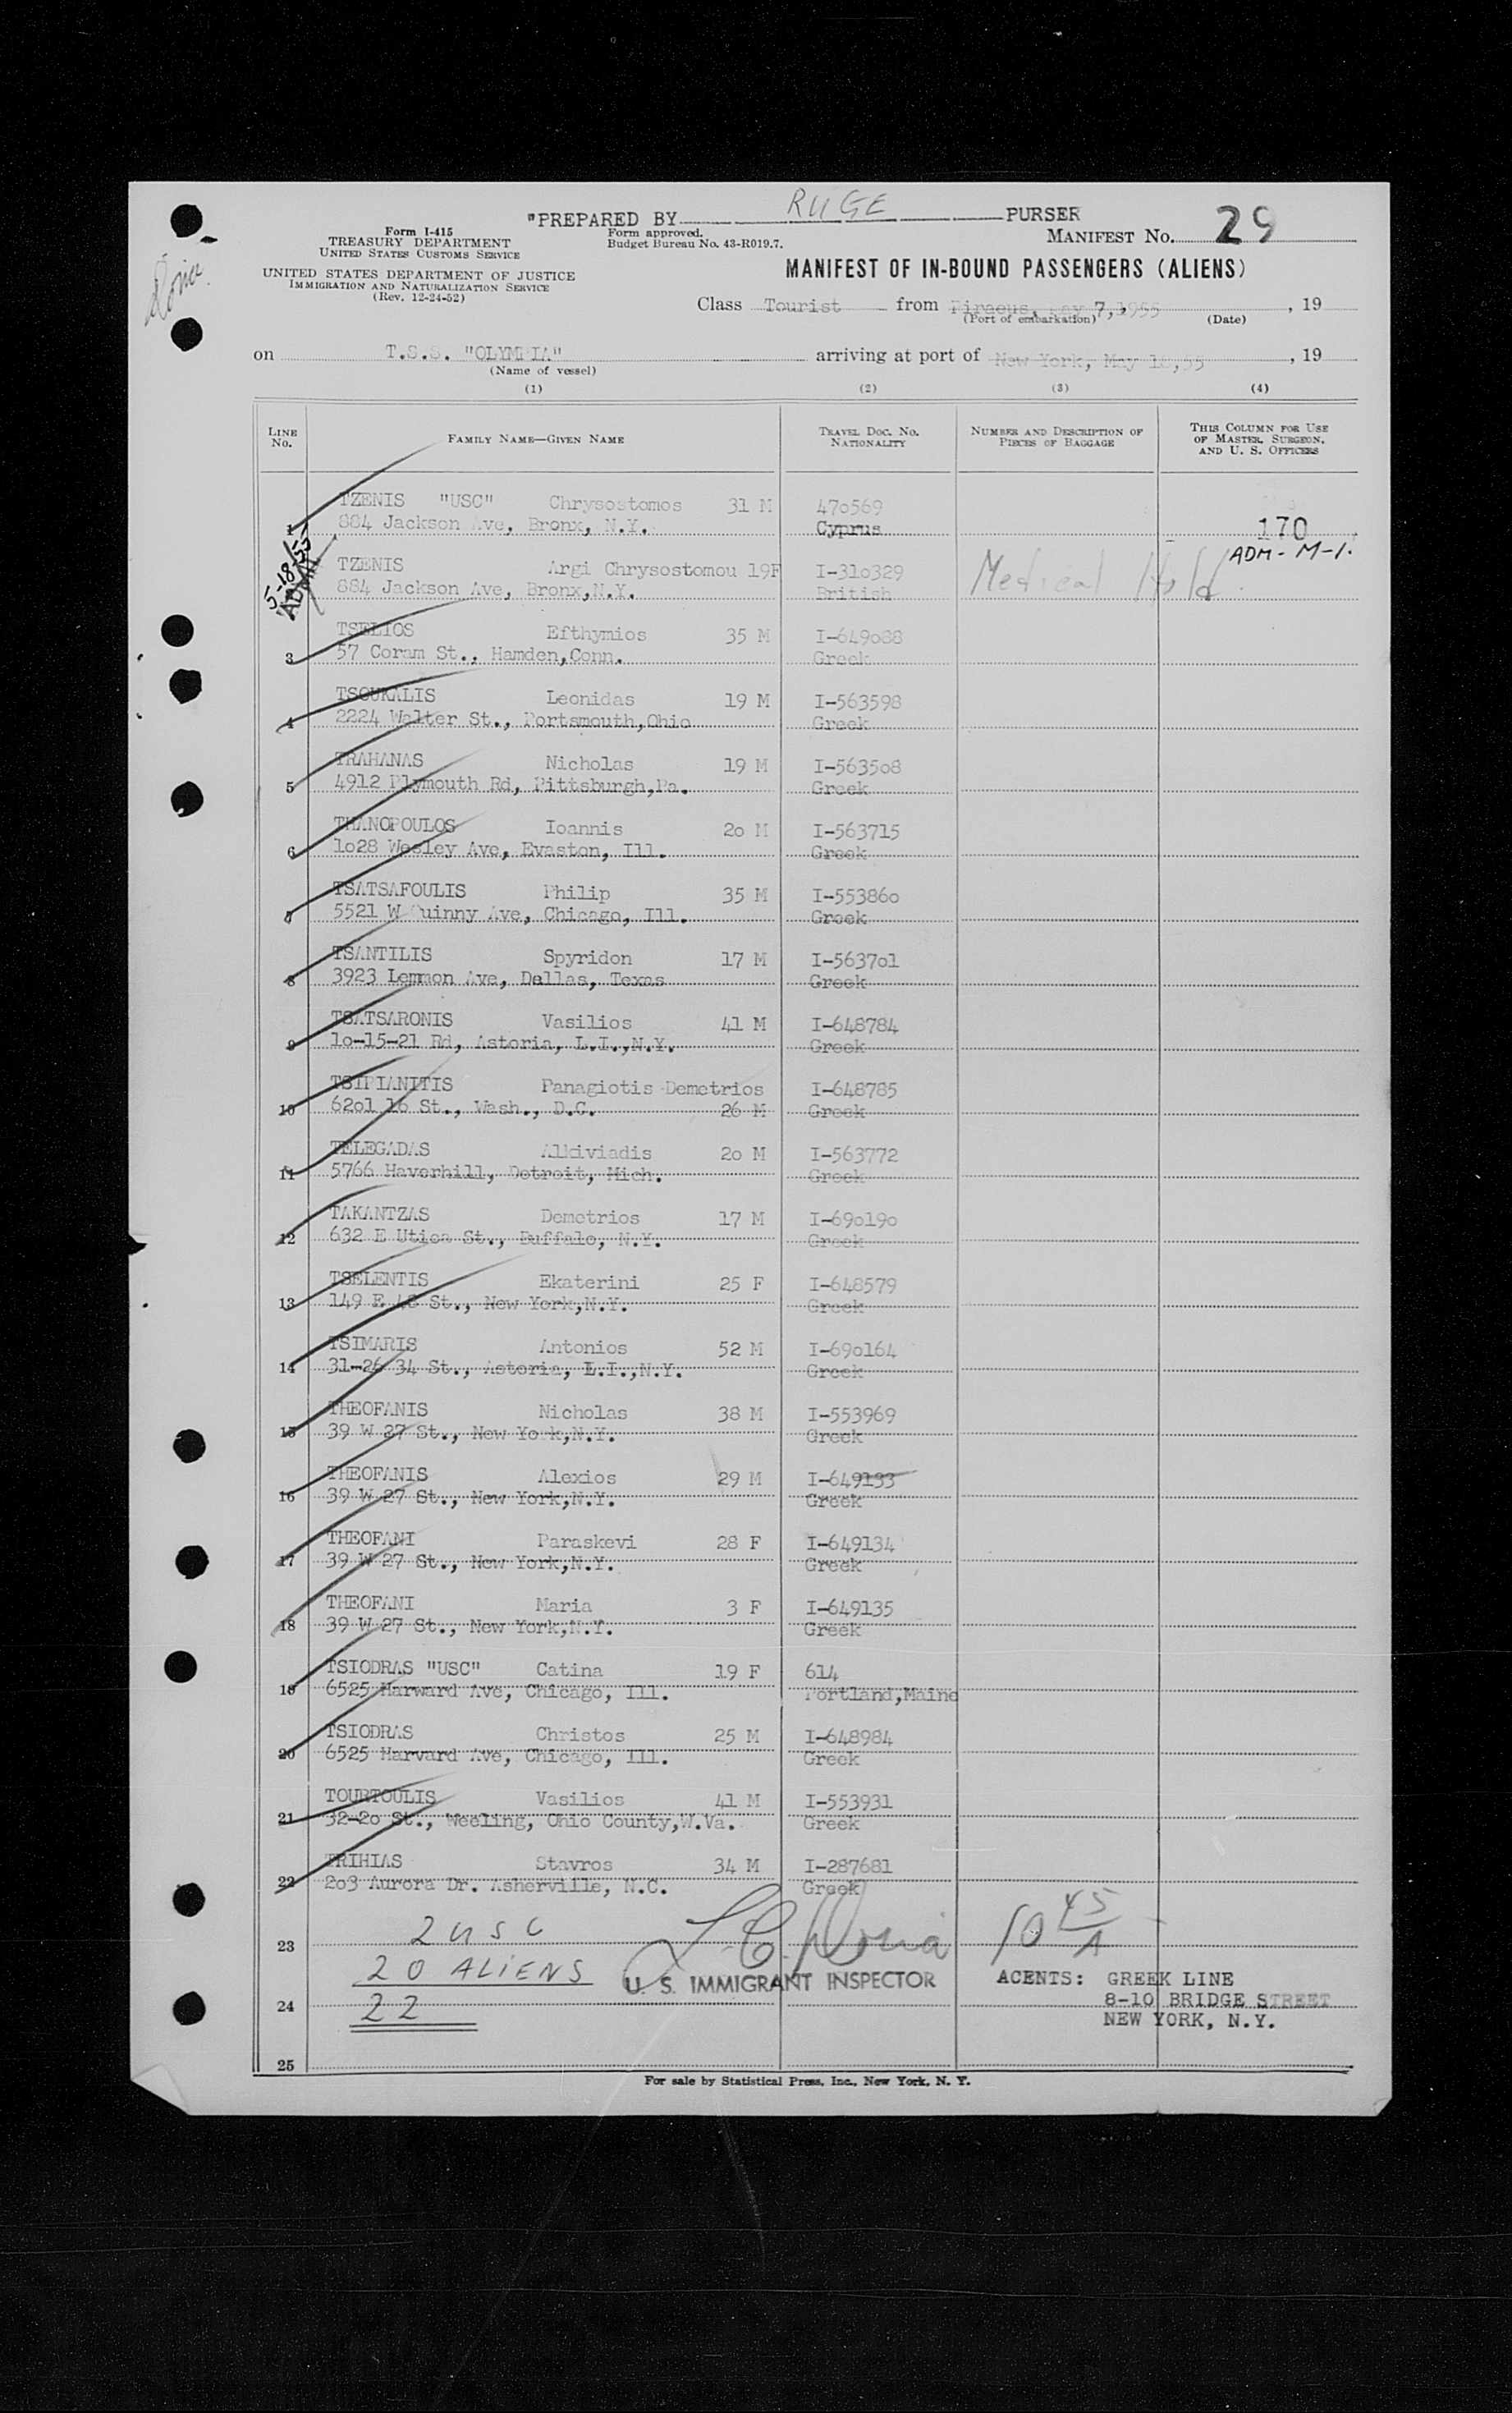 "PREPARED BY RUGE PURSER
Form I-415
TREASURY DEPARTMENT
UNITED STATES CUSTOMS SERVICE
Form approved.
Budget Bureau No. 43-R019.7.
MANIFEST No. 29
UNITED STATES DEPARTMENT OF JUSTICE
IMMIGRATION AND NATURALIZATION SERVICE
(Rev. 12-24-52)
MANIFEST OF IN-BOUND PASSENGERS (ALIENS)
Class Tourist from Piraeus, May 7, 1955, 19
(Port of embarkation) (Date)
on T.S.S. "OLYMPIA" arriving at port of New York, May 18,55, 19
(Name of vessel)
(1) (2) (3) (4)
LINE No. FAMILY NAME—GIVEN NAME TRAVEL DOC. NO. NATIONALITY NUMBER AND DESCRIPTION OF PIECES OF BAGGAGE THIS COLUMN FOR USE OF MASTER, SURGEON, AND U. S. OFFICERS
TZENIS "USC" Chrysostomos 31 M 470569
1 884 Jackson Ave, Bronx, N.Y. Cyprus 170
5-18-55 ADM ADM- M-1.
TZENIS Argi Chrysostomou 19F I-310329 Medical Hold
884 Jackson Ave, Bronx,N.Y. British
TSELIOS Efthymios 35 M I-649088
3 57 Coram St., Hamden,Conn. Greek
TSOUKALIS Leonidas 19 M I-563598
4 2224 Walter St., Portsmouth,Ohio Greek
TRAHANAS Nicholas 19 M I-563508
5 4912 Plymouth Rd, Pittsburgh,Pa. Greek
THANOPOULOS Ioannis 20 M I-563715
6 1028 Wesley Ave, Evaston, Ill. Greek
TSATSAFOULIS Philip 35 M I-553860
7 5521 W Quinny Ave, Chicago, Ill. Greek
TSANTILIS Spyridon 17 M I-563701
8 3923 Lemmon Ave, Dallas, Texas Greek
TSATSARONIS Vasilios 41 M I-648784
9 10-15-21 Rd, Astoria, L.I.,N.Y. Greek
TSIPIANITIS Panagiotis Demetrios I-648785
10 6201 16 St., Wash., D.C. 26 M Greek
TELEGADAS Alkiviadis 20 M I-563772
11 5766 Haverhill, Detroit, Mich. Greek
TAKANTZAS Demetrios 17 M I-690190
12 632 E Utica St., Buffalo, N.Y. Greek
TSELENTIS Ekaterini 25 F I-648579
13 149 E 48 St., New York,N.Y. Greek
TSIMARIS Antonios 52 M I-690164
14 31-26 34 St., Astoria, L.I.,N.Y. Greek
THEOFANIS Nicholas 38 M I-553969
15 39 W 27 St., New York,N.Y. Greek
THEOFANIS Alexios 29 M I-649133
16 39 W 27 St., New York,N.Y. Greek
THEOFANI Paraskevi 28 F I-649134
17 39 W 27 St., New York,N.Y. Greek
THEOFANI Maria 3 F I-649135
18 39 W 27 St., New York,N.Y. Greek
TSIODRAS "USC" Catina 19 F 614
19 6525 Harward Ave, Chicago, Ill. Portland,Maine
TSIODRAS Christos 25 M I-648984
20 6525 Harvard Ave, Chicago, Ill. Greek
TOURTOULIS Vasilios 41 M I-553931
21 32-20 St., Weeling, Ohio County,W.Va. Greek
TRIHIAS Stavros 34 M I-287681
22 203 Aurora Dr. Asherville, N.C. Greek
23 2 USC 10 45/A
20 ALIENS U. S. IMMIGRANT INSPECTOR AGENTS: GREEK LINE
24 22 8-10 BRIDGE STREET
NEW YORK, N.Y.
25
For sale by Statistical Press, Inc., New York, N. Y.